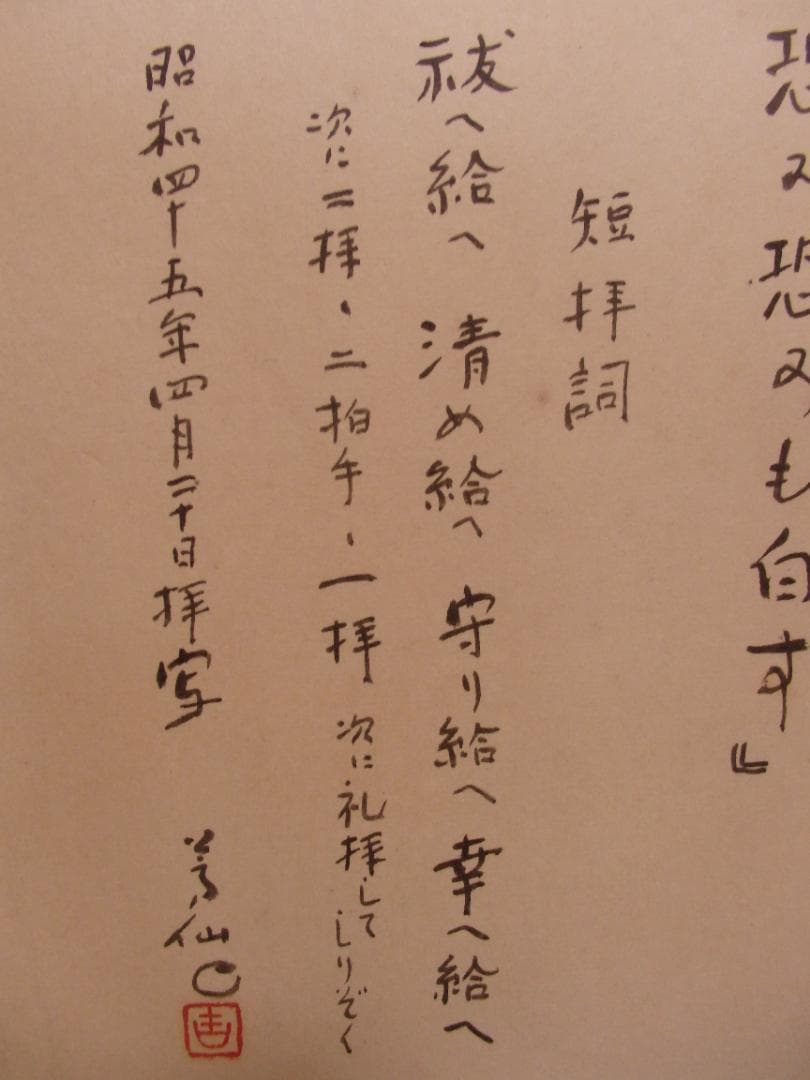 恐み恐みも白す』
短拝詞
祓へ給へ 清め給へ 守り給へ 幸へ給へ
次に二拝、二拍手、一拝、次に礼拝してしりぞく
昭和四十五年四月二十日拝写